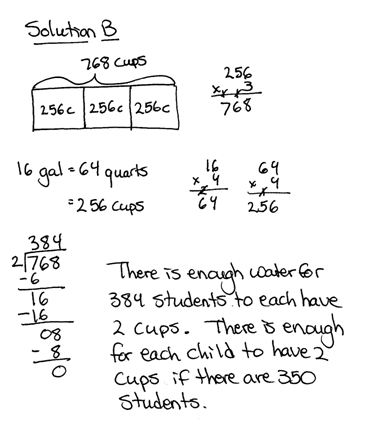 Solution B
768 cups
256c 256c 256c
256
x 3
768
16 gal = 64 quarts
= 256 cups
16
x 4
64
64
x 4
256
384
2 768
-6
16
-16
08
- 8
0
There is enough water for
384 students to each have
2 cups. There is enough
for each child to have 2
cups if there are 350
students.